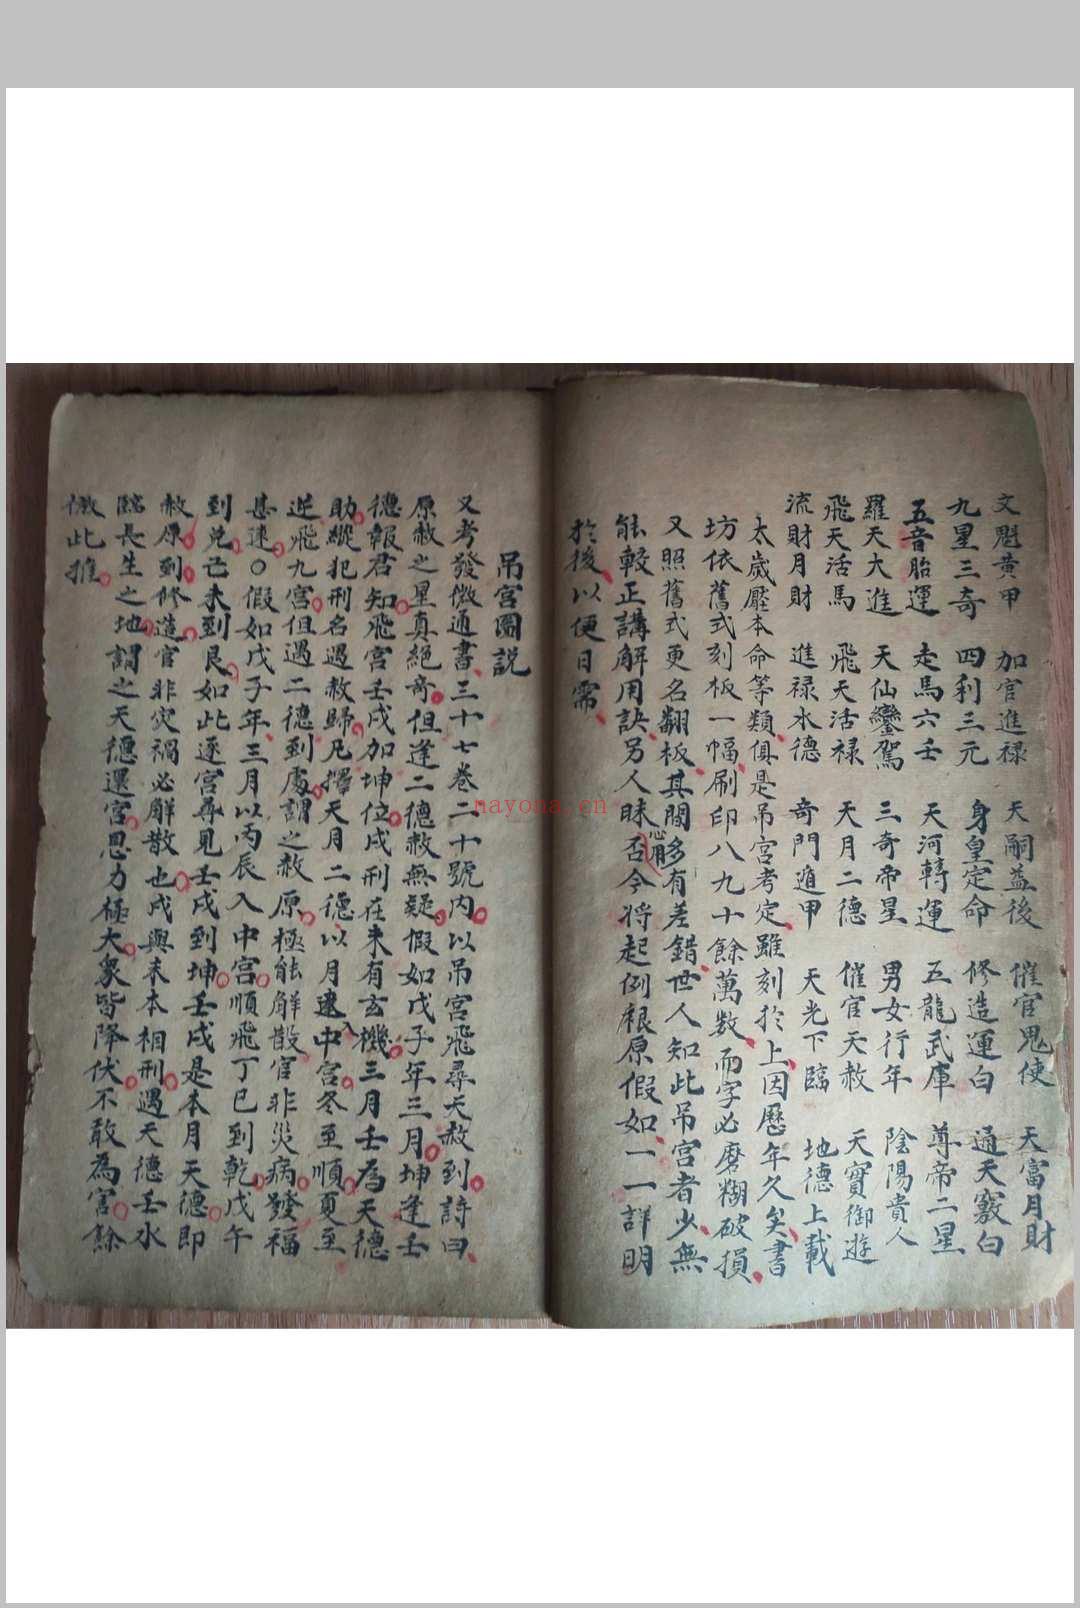 文魁黄甲 加官進禄 天嗣益後 催官鬼使 天富月財
九星三奇 四利三元 身皇定命 修造運白 通天竅白
五音胎運 走馬六壬 天河轉運 五龍武庫 尊帝二星
羅天大進 天仙鑾駕 三奇帝星 男女行年 陰陽貴人
飛天活馬 飛天活禄 天月二德 催官天赦 天寳御遊
流財月財 進禄水德 奇門遁甲 天光下臨 地德上載
太歲壓本命等類俱是吊宮考定雖刻於上因歷年久矣書
坊依舊式刻板一幅刷印八九十餘萬數而字必磨糊破損
又照舊式更名翻板其間多有差錯世人知此吊宮者少無
能較正講解用訣另人昧心用否今将起例根原假如一一詳明
於後以便日需
吊宮圖説
又考發微通書三十七卷二十號内以吊宮飛尋天赦到詩曰
原赦之星真絕奇但逢二德赦無疑假如戊子年三月坤逢壬
德報君知飛宮壬戌加坤位戌刑在未有玄機三月壬為天德
助縱犯刑名遇赦歸凡擇天月二德以月建入中宮冬至順夏至
逆飛九宮但遇二德到處謂之赦原極能解散官非災病發福
甚速○假如戊子年三月以丙辰入中宮順飛丁巳到乾戊午
到兌己未到艮如此逐宮尋見壬戌到坤壬戌是本月天德即
赦原到修造官非灾禍必解散也戌與未本相刑遇天德壬水
臨長生之地謂之天德還宮恩力極大衆皆降伏不敢為害餘
倣此推
nayona.cn